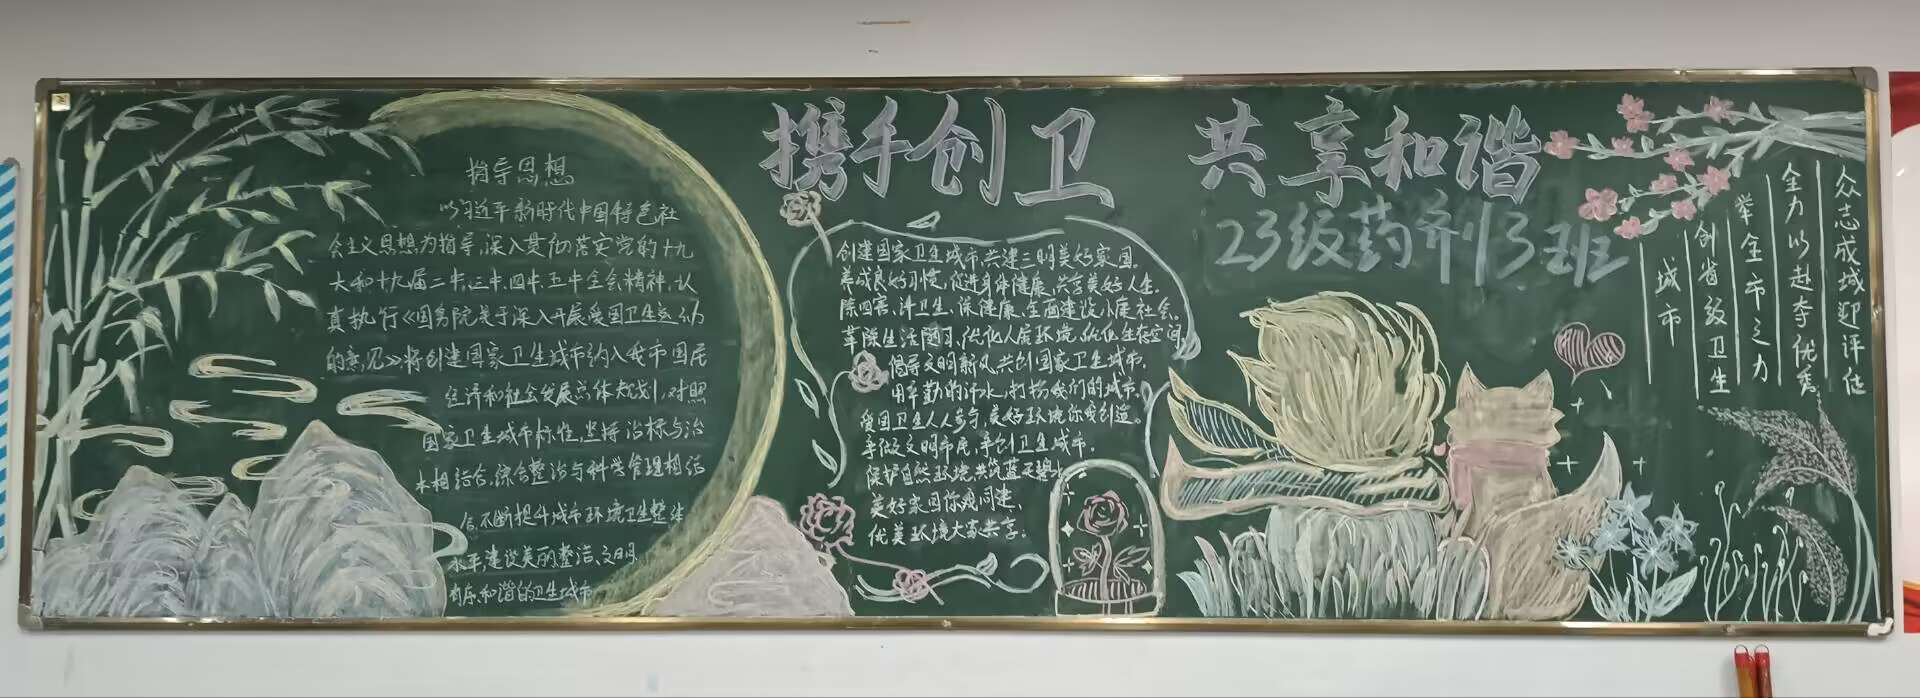 指导思想
以习近平新时代中国特色社
会主义思想为指导,深入贯彻落实党的十九
大和十九届二中,三中,四中,五中全会精神,认
真执行《国务院关于深入开展爱国卫生运动
的意见》,将创建国家卫生城市纳入我市国民
经济和社会发展总体规划,对照
国家卫生城市标准,坚持治标与治
本相结合,综合整治与科学管理相结
合,不断提升城市环境卫生整体
水平,建设美丽整洁、文明
有序,和谐的卫生城市
携手创卫 共享和谐
23级药剂13班
创建国家卫生城市,共建三明美好家园.
养成良好习惯,促进身体健康,共享美好人生.
除四害,讲卫生,保健康,全面建设小康社会。
革除生活陋习,优化人居环境,优化生态空间,
倡导文明新风,共创国家卫生城市.
用辛勤的汗水,打扮我们的城市.
爱国卫生人人参与,美好环境你我创造。
争做文明市民,争创卫生城市.
保护自然环境,共筑蓝天碧水
美好家园你我同建,
优美环境大家共享。
众志成城迎评估
全力以赴夺优秀
举全市之力
创省级卫生
城市